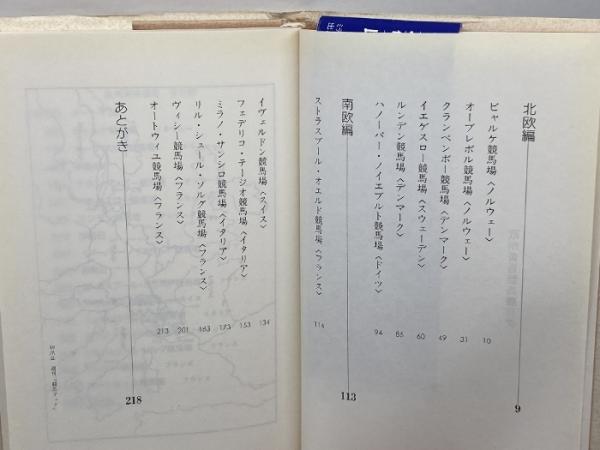 北欧編 9
ビャルケ競馬場〈ノルウェー〉 10
オーブレボル競馬場〈ノルウェー〉 31
クランペンボー競馬場〈デンマーク〉 49
イエゲスロー競馬場〈スウェーデン〉 60
ルンデン競馬場〈デンマーク〉 85
ハノーバー・ノイエブルト競馬場〈ドイツ〉 94
南欧編 113
ストラスブール・オエルド競馬場〈フランス〉 114
イヴェルドン競馬場〈スイス〉 134
フェデリコ・テージオ競馬場〈イタリア〉 153
ミラノ・サンシロ競馬場〈イタリア〉 173
リル・シュール・ソルグ競馬場〈フランス〉 183
ヴィシー競馬場〈フランス〉 201
オートウィユ競馬場〈フランス〉 213
あとがき 218